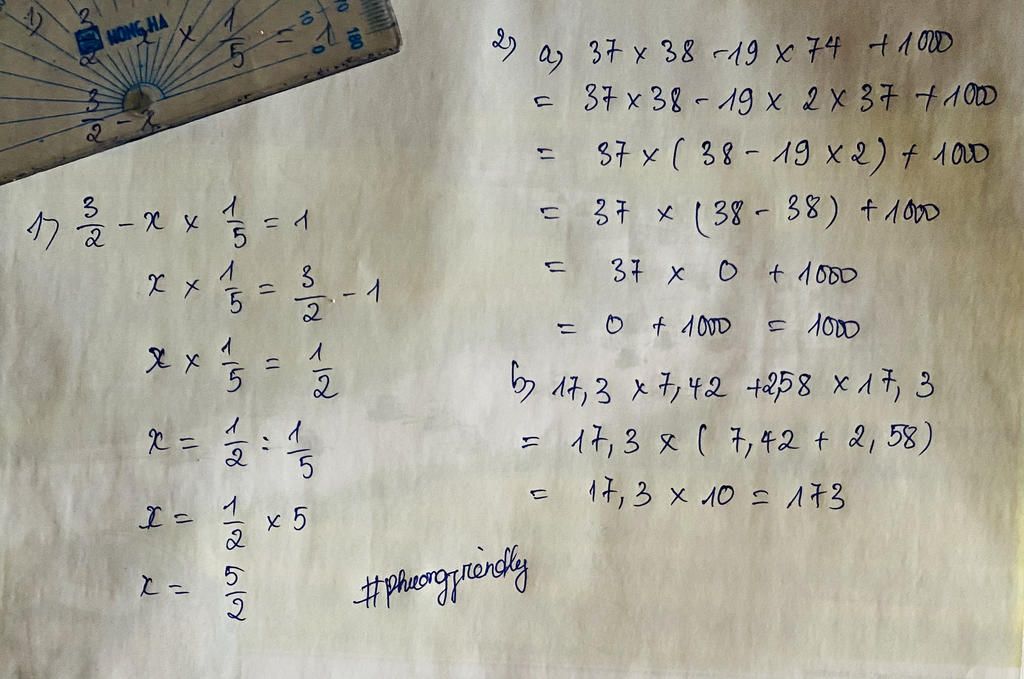 1) 3/2 x × 1/5 = 1
HONG HA
10
0
170
180
3/2 - x
1) 3/2 - x × 1/5 = 1
x × 1/5 = 3/2 - 1
x × 1/5 = 1/2
x = 1/2 : 1/5
x = 1/2 × 5
x = 5/2
#phuongfriendly
2) a) 37 × 38 - 19 × 74 + 1000
= 37 × 38 - 19 × 2 × 37 + 1000
= 37 × (38 - 19 × 2) + 1000
= 37 × (38 - 38) + 1000
= 37 × 0 + 1000
= 0 + 1000 = 1000
b) 17,3 × 7,42 + 2,58 × 17,3
= 17,3 × (7,42 + 2,58)
= 17,3 × 10 = 173